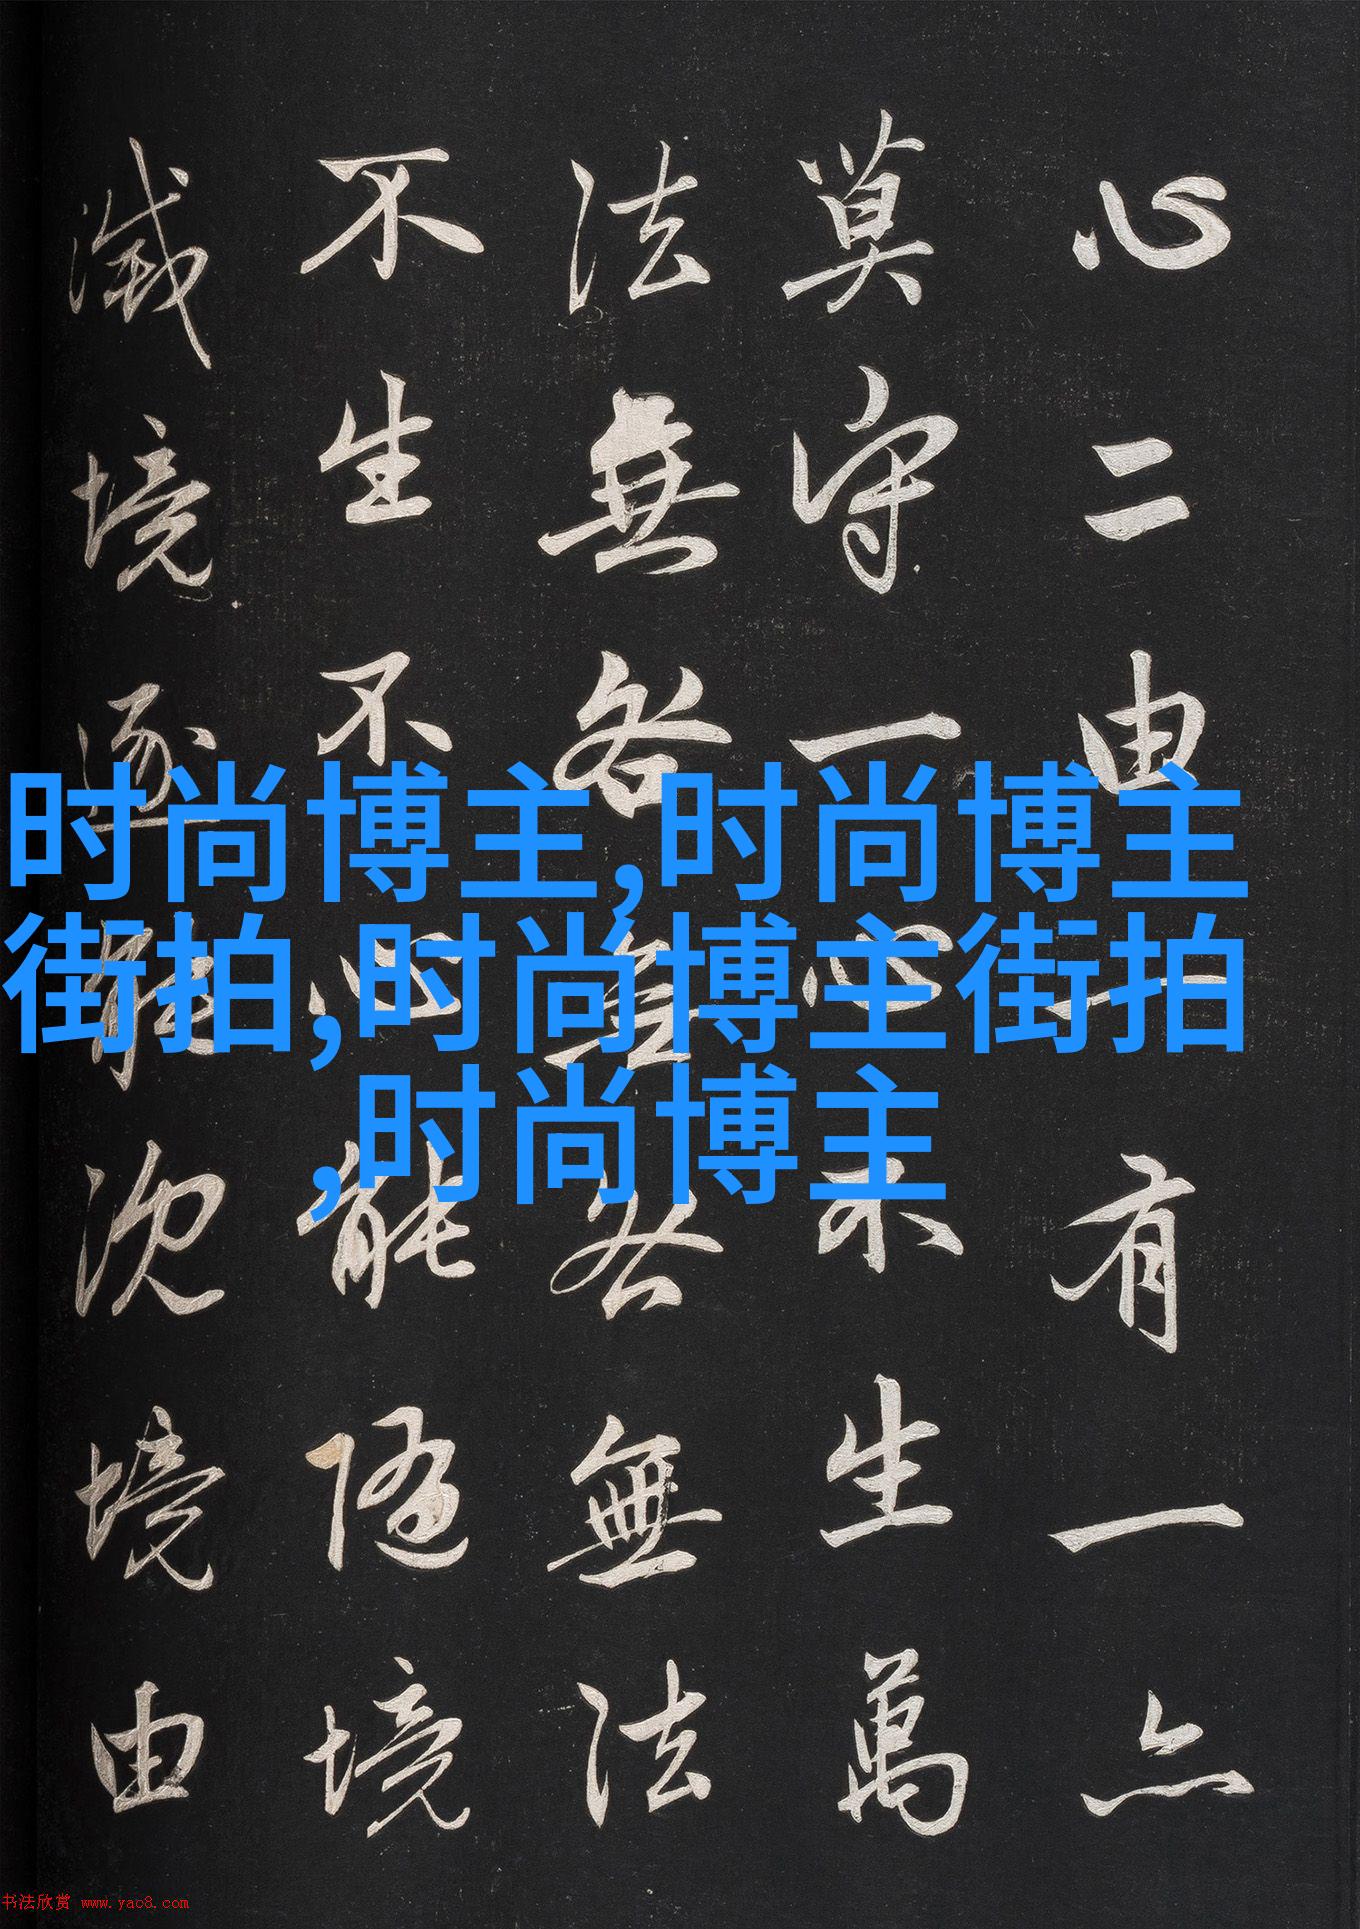 心二由一有一亦
莫守一心不生萬
法無咎無咎無法
不生不心能隨境
滅境逐能沉境由
时尚博主,时尚博主
街拍,时尚博主街拍
,时尚博主
书法欣赏 www.yac8.com